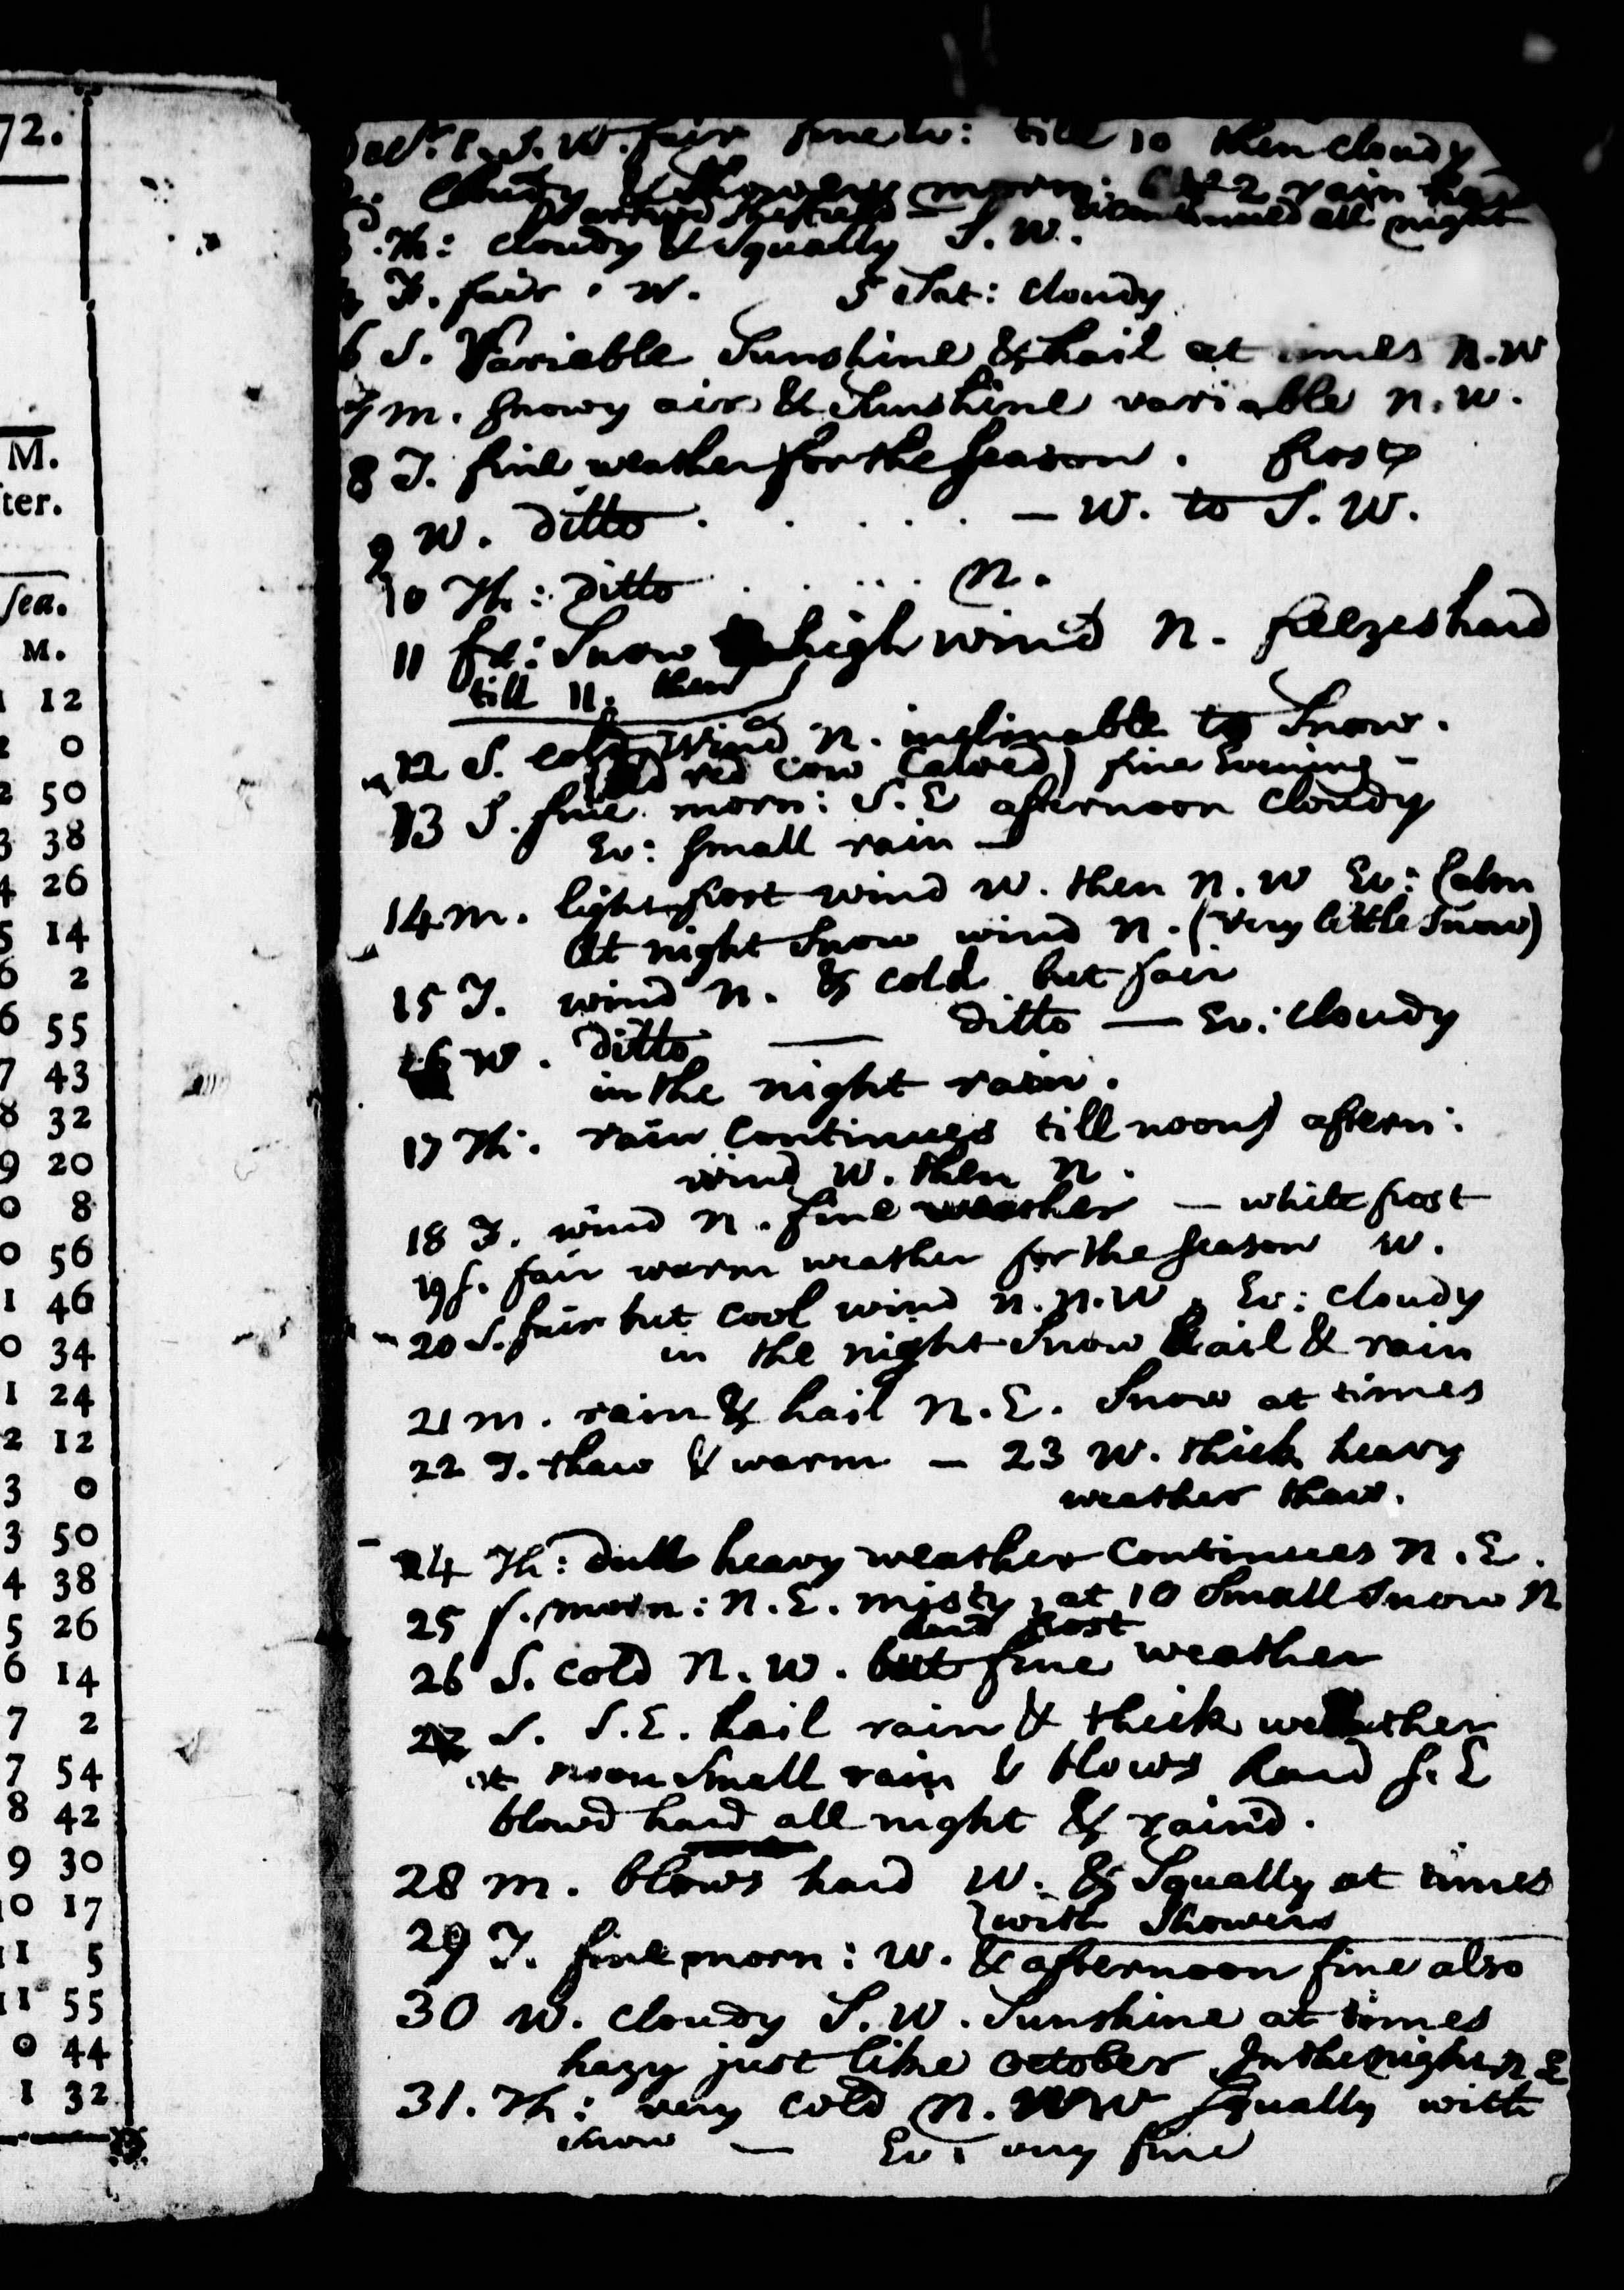 72.
M.
ter.
sea.
M.
1 12
2 0
2 50
3 38
4 26
5 14
6 2
6 55
7 43
8 32
9 20
0 8
0 56
1 46
0 34
1 24
2 12
3 0
3 50
4 38
5 26
6 14
7 2
7 54
8 42
9 30
10 17
11 5
11 55
0 44
1 32
S. W. fair fine till 10 then cloudy
Cloudy & Showery morn: 2 rain
continued all night
Th: cloudy & Squally S. W.
F. fair . W. 5 Sat: Cloudy
6 S. Variable Sunshine & hail at times N. W
7 M. Snowy air & Sunshine variable N. W.
8 T. fine weather for the Season . frost
9 W. Ditto . . . . . — W. to S. W.
10 Th: Ditto . . . . N.
11 fr: Snow high wind N. freezes hard
till 11. then
12 S. cold wind N. inclinable to Snow.
(old red cow Calved) fine Evening -
13 S. fine morn: S. E afternoon Cloudy
Ev: Small rain —
14 M. light frost wind W. then N. W Ev: Calm
At night Snow wind N. (very little Snow)
15 T. wind N. & cold but fair
16 W. Ditto — ditto — Ev: Cloudy
in the night rain.
17 Th: rain Continues till noon) aftern:
wind W. then N.
18 F. wind N. fine weather — white frost
19 S. fair warm weather for the Season W.
20 S. fair but cool wind N. N. W. Ev: cloudy
in the night Snow hail & rain
21 M. rain & hail N. E. Snow at times
22 T. thaw & warm — 23 W. thick heavy
weather thaw.
24 Th: dull heavy weather Continues N. E.
25 f. morn: N. E. misty, at 10 Small Snow N
hard frost
26 S. cold N. W. but fine weather
27 S. S. E. hail rain & thick weather
at noon Small rain & blows hard S. E
blowd hard all night & rain'd.
28 M. blows hard W. & Squally at times
with Showers
29 T. fine morn: W. & afternoon fine also
30 W. cloudy S. W. Sunshine at times
hazy just like October In the night N E
31. Th: very cold N. NW Squally with
Snow — Ev: very fine